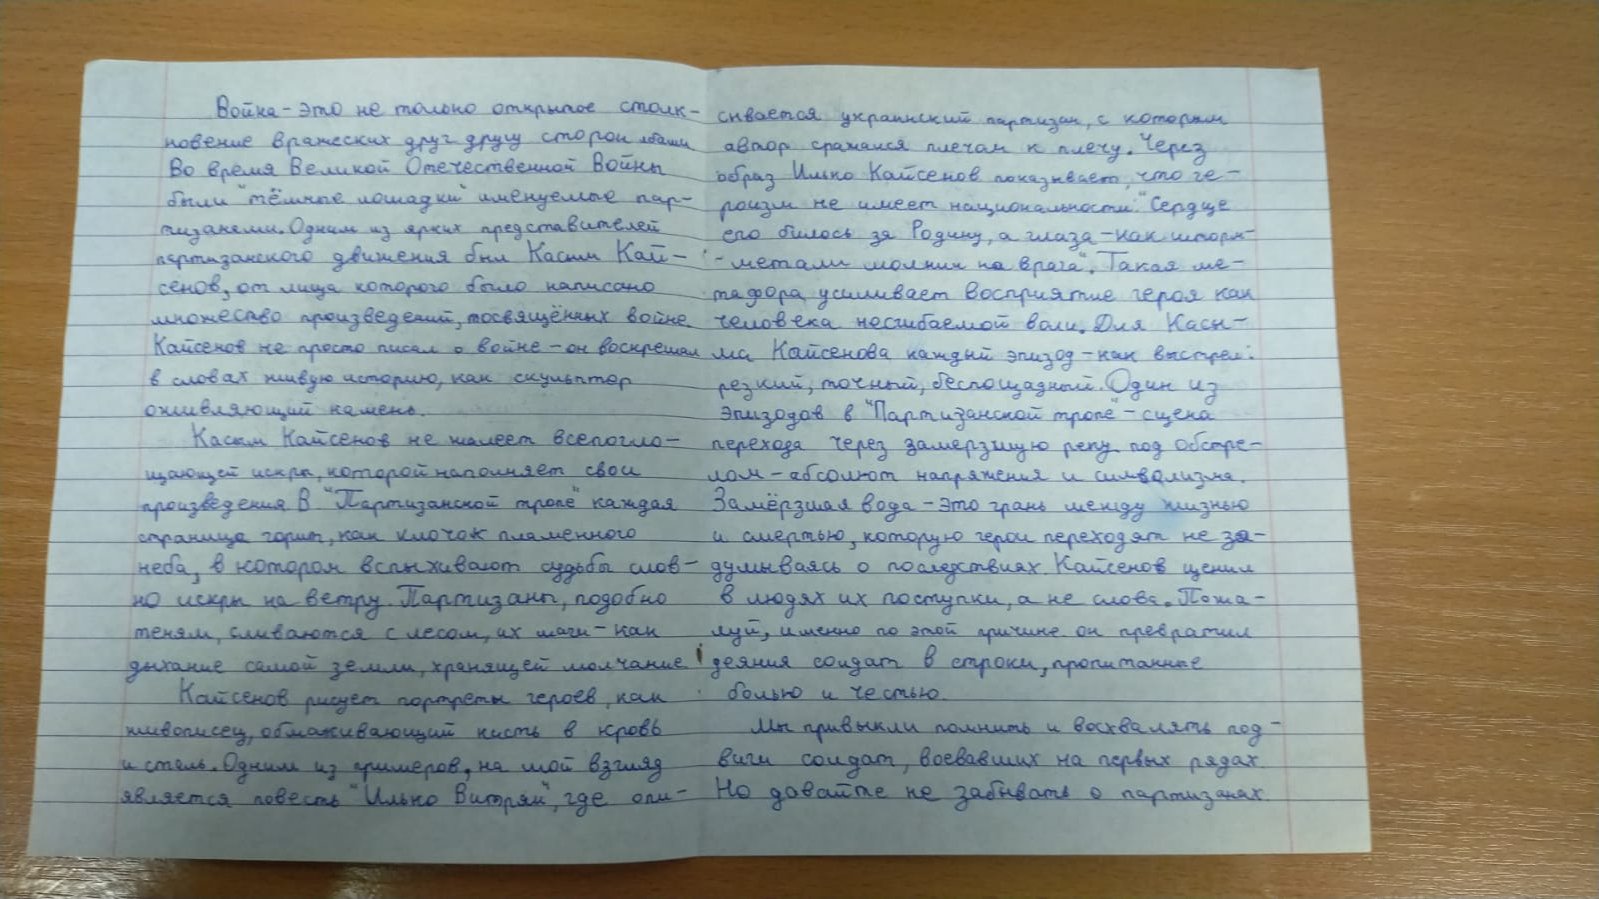 Война - это не только открытое столк-
новение вражеских друг другу сторон
Во время Великой Отечественной Войны
были "тёмные лошадки" именуемые пар-
тизанами. Одним из ярких представителей
партизанского движения был Касым Кай-
сенов, от лица которого было написано
множество произведений, посвящённых войне.
Кайсенов не просто писал о войне - он воскрешал
в словах живую историю, как скульптор
оживляющий камень.
Касым Кайсенов не жалеет всепогло-
щающей искры, которой наполняет свои
произведения. В "Партизанской тропе" каждая
страница горит, как клочок пламенного
неба, в котором вспыхивают судьбы слов-
но искры на ветру. Партизаны, подобно
теням, сливаются с лесом, их шаги - как
дыхание самой земли, хранящей молчание
Кайсенов рисует портреты героев, как
живописец, обмакивающий кисть в кровь
и сталь. Одним из примеров, на мой взгляд
является повесть "Илько Витряк", где опи-
сывается украинский партизан, с которым
автор сражался плечом к плечу. Через
образ Илько Кайсенов показывает, что ге-
роизм не имеет национальности. "Сердце
его билось за Родину, а глаза - как шторм -
- метали молнии на врага". Такая ме-
тафора усиливает восприятие героя как
человека несгибаемой воли. Для Касы-
ма Кайсенова каждый эпизод - как выстрел:
резкий, точный, беспощадный. Один из
эпизодов в "Партизанской тропе" - сцена
перехода через замерзшую реку под обстре-
лом - абсолют напряжения и символизма.
Замёрзшая вода - это грань между жизнью
и смертью, которую герои переходят не за-
думываясь о последствиях. Кайсенов ценил
в людях их поступки, а не слова. Пожа-
луй, именно по этой причине он превратил
деяния солдат в строки, пропитанные
болью и честью.
Мы привыкли помнить и восхвалять под-
виги солдат, воевавших на первых рядах.
Но давайте не забывать о партизанах.